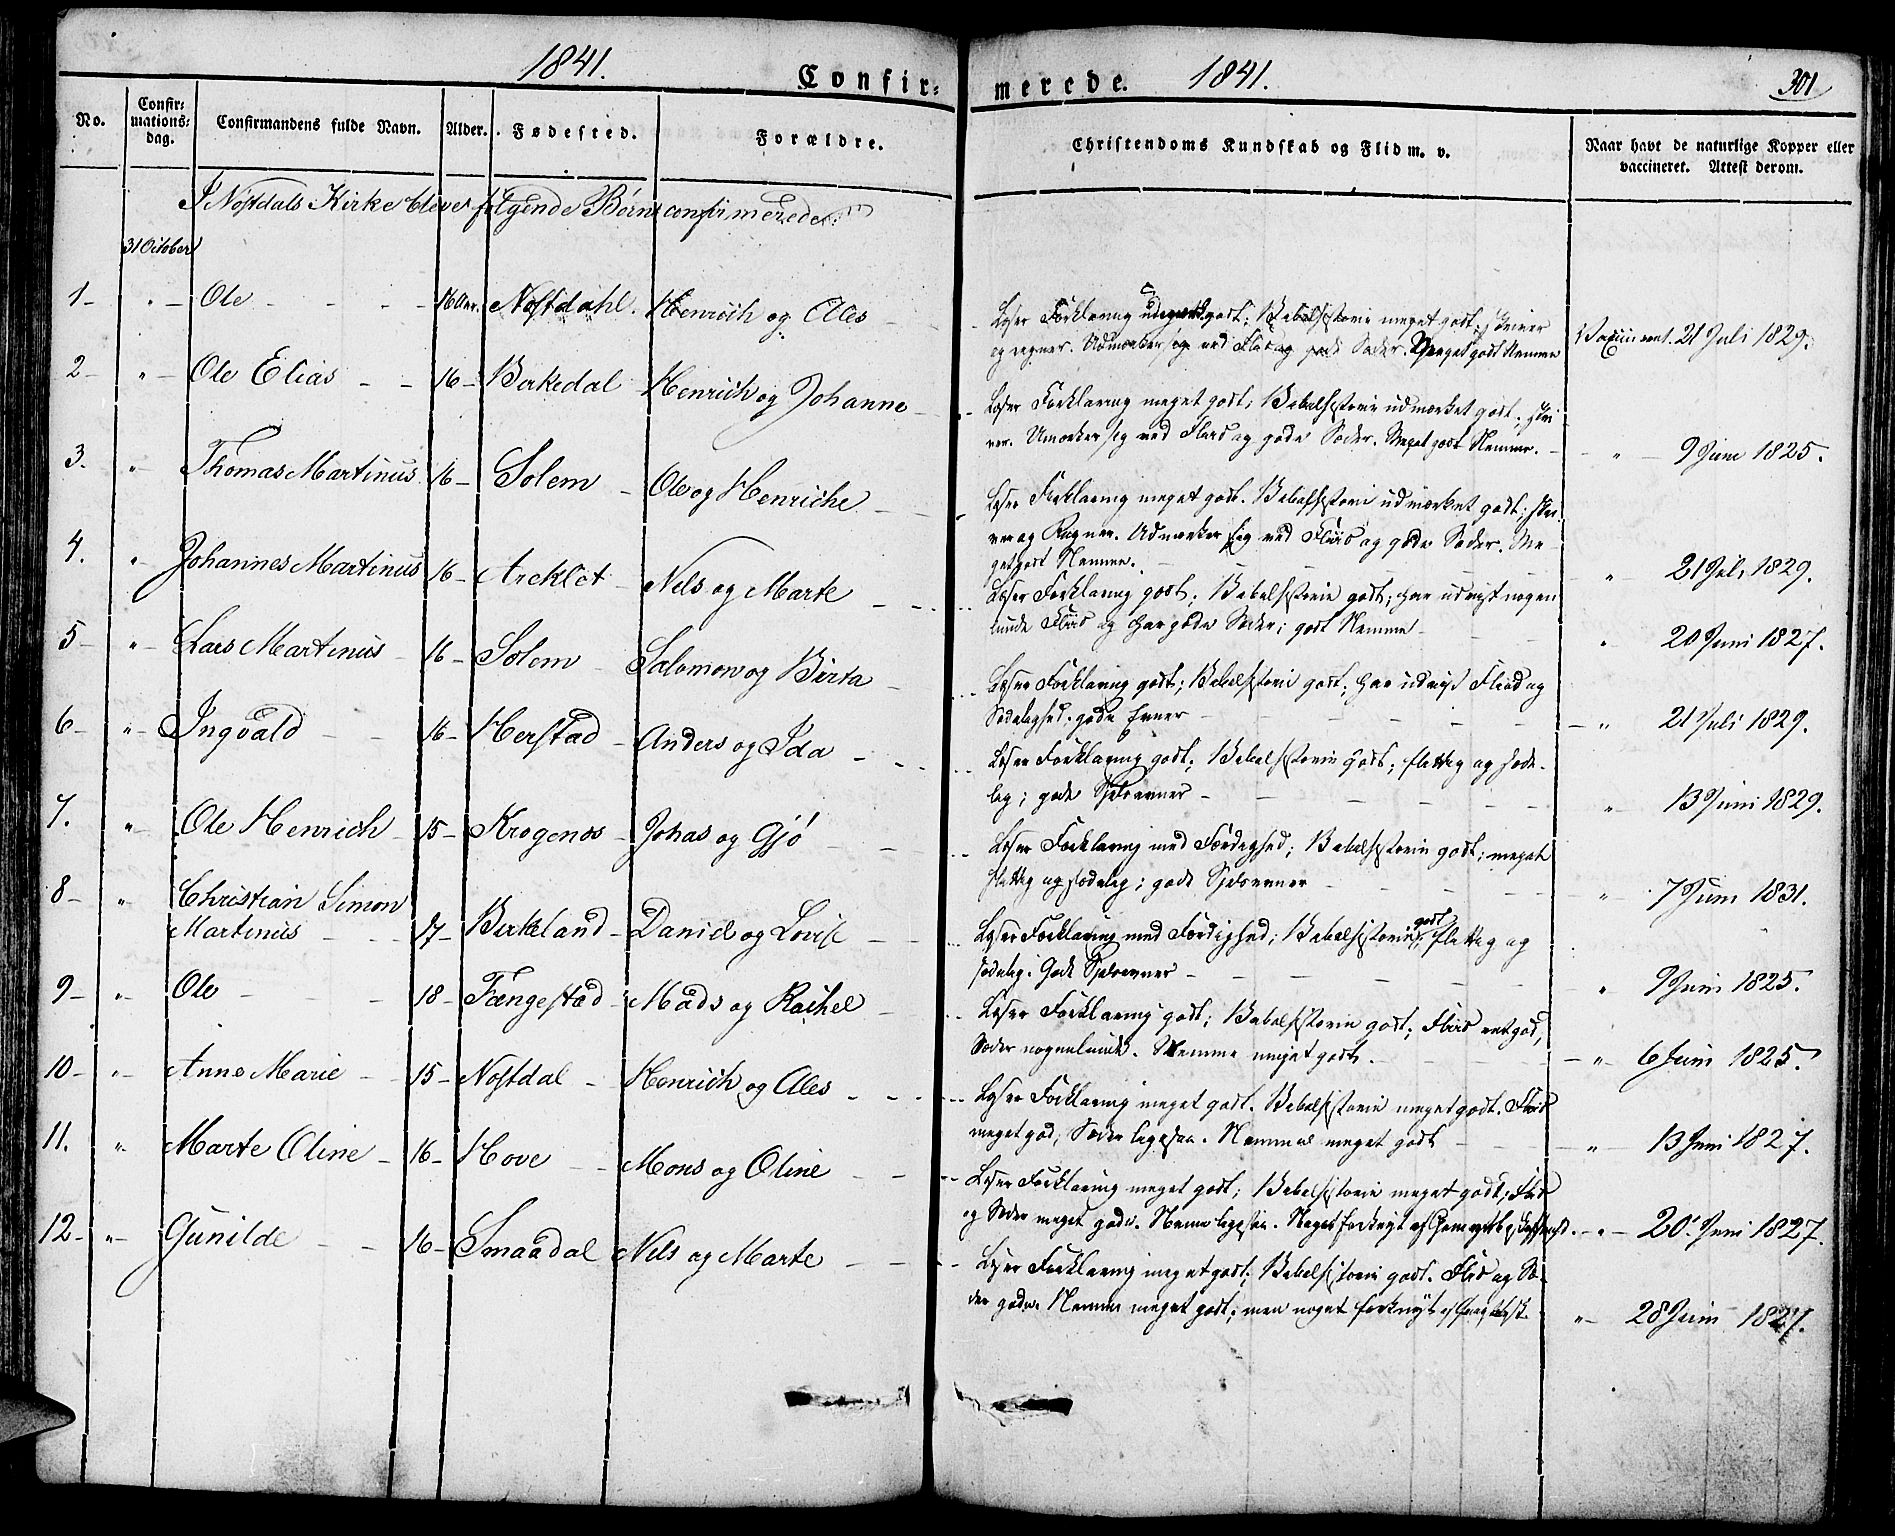 1841.
Confir=
merede.
1841.
301
No.
Confir=
mations=
dag.
Confirmandens fulde Navn.
Alder.
Fødested.
Forældre.
Christendoms Kundskab og Flid m. v.
Naar havt de naturlige Kopper eller
vaccineret. Attest derom.
I Nøstdals Kirke blever følgende Børn confirmerede:
31 October
1 - " - Ole - 16 Aar. Nøstdahl. Henrich og Ales
Læser Forklaring godt; Bibelhistorie meget godt; skriver
og regner. Udmærker sig ved Flid og gode Sæder. Meget godt Nemme
Vaccineret. 21 Juli 1829.
2 - " - Ole Elias - 16 - Birkedal Henrich og Johanne
Læser Forklaring meget godt; Bibelhistorie udmærket godt; skri
ver. Umærker sig ved Flid og gode Sæder. Meget godt Nemme.
" 9 Juni 1825.
3. " Thomas Martinus 16 - Solem - Ole og Henriche
Læser Forklaring meget godt. Bibelhistorie udmærket godt; skri
ver og Regner. Udmærker sig ved Fliid og gode Sæder. Me-
get godt Nemme.
" 21 Juli 1829.
4. " Johannes Martinus 16 - Areklet Nels og Marte
Læser Forklaring godt; Bibelhistorie godt; har udvist nogen
lunde Fliid og har gode Sæder; godt Nemme
" 20 Juni 1827.
5 - " Lars Martinus 16 - Solem Salomon og Birta
Læser Forklaring godt; Bibelhistorie godt; har udvist Fliid og
Sædelighed. gode Evner
" 21 Juli 1829.
6 - " - Ingvald - 16 - Herstad - Anders og Ida
Læser Forklaring godt; Bibelhistorie godt; flittig og sæde-
lig; gode Sjelsevner
" 13 Juni 1829.
7. " Ole Henrich 15 - Krogenæs - Johas og Gjø
Læser Forklaring med Færdighed; Bibelhistorie godt; meget
flittig og sædelig; gode Sjelsevner
" 7 Juni 1831.
8 - " Christian Simon
Martinus 17 - Birkeland - Daniel og Lovise
Læser Forklaring med Færdighed; Bibelhistorie godt; flittig og
sædelig. Gode Sjelsevner
" 9 Juni 1825.
9 - " Ole 18 - Fængestad - Mads og Rachel
Læser Forklaring godt; Bibelhistorie godt; Fliid ret god,
Sæder nogenlunde. Nemme meget godt.
" 6 Juni 1825.
10 - " Anne Marie 15 - Nøstdal - Henrich og Ales
Læser Forklaring meget godt. Bibelhistorie meget godt. Fliid
meget god; Sæder ligesaa. Nemmes meget godt
" 13 Juni 1827.
11. " Marte Oline - 16 - Hove Mons og Oline
Læser Forklaring meget godt; Bibelhistorie meget godt; Flid
og Sæder meget gode. Nemme ligesaa. Noget forknyt af
" 20. Juni 1827.
12 - " - Gunilde 16 - Smaadal Nels og Marte
Læser Forklaring meget godt; Bibelhistorie godt. Flid og Sæ-
der gode. Nemme meget godt; men noget forknyt af
" 28 Juni 1827.